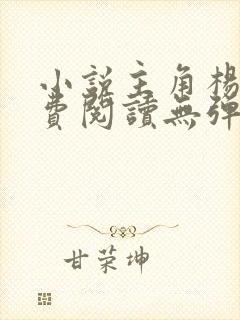 小説主角楊
費閱讀無彈
甘荣坤